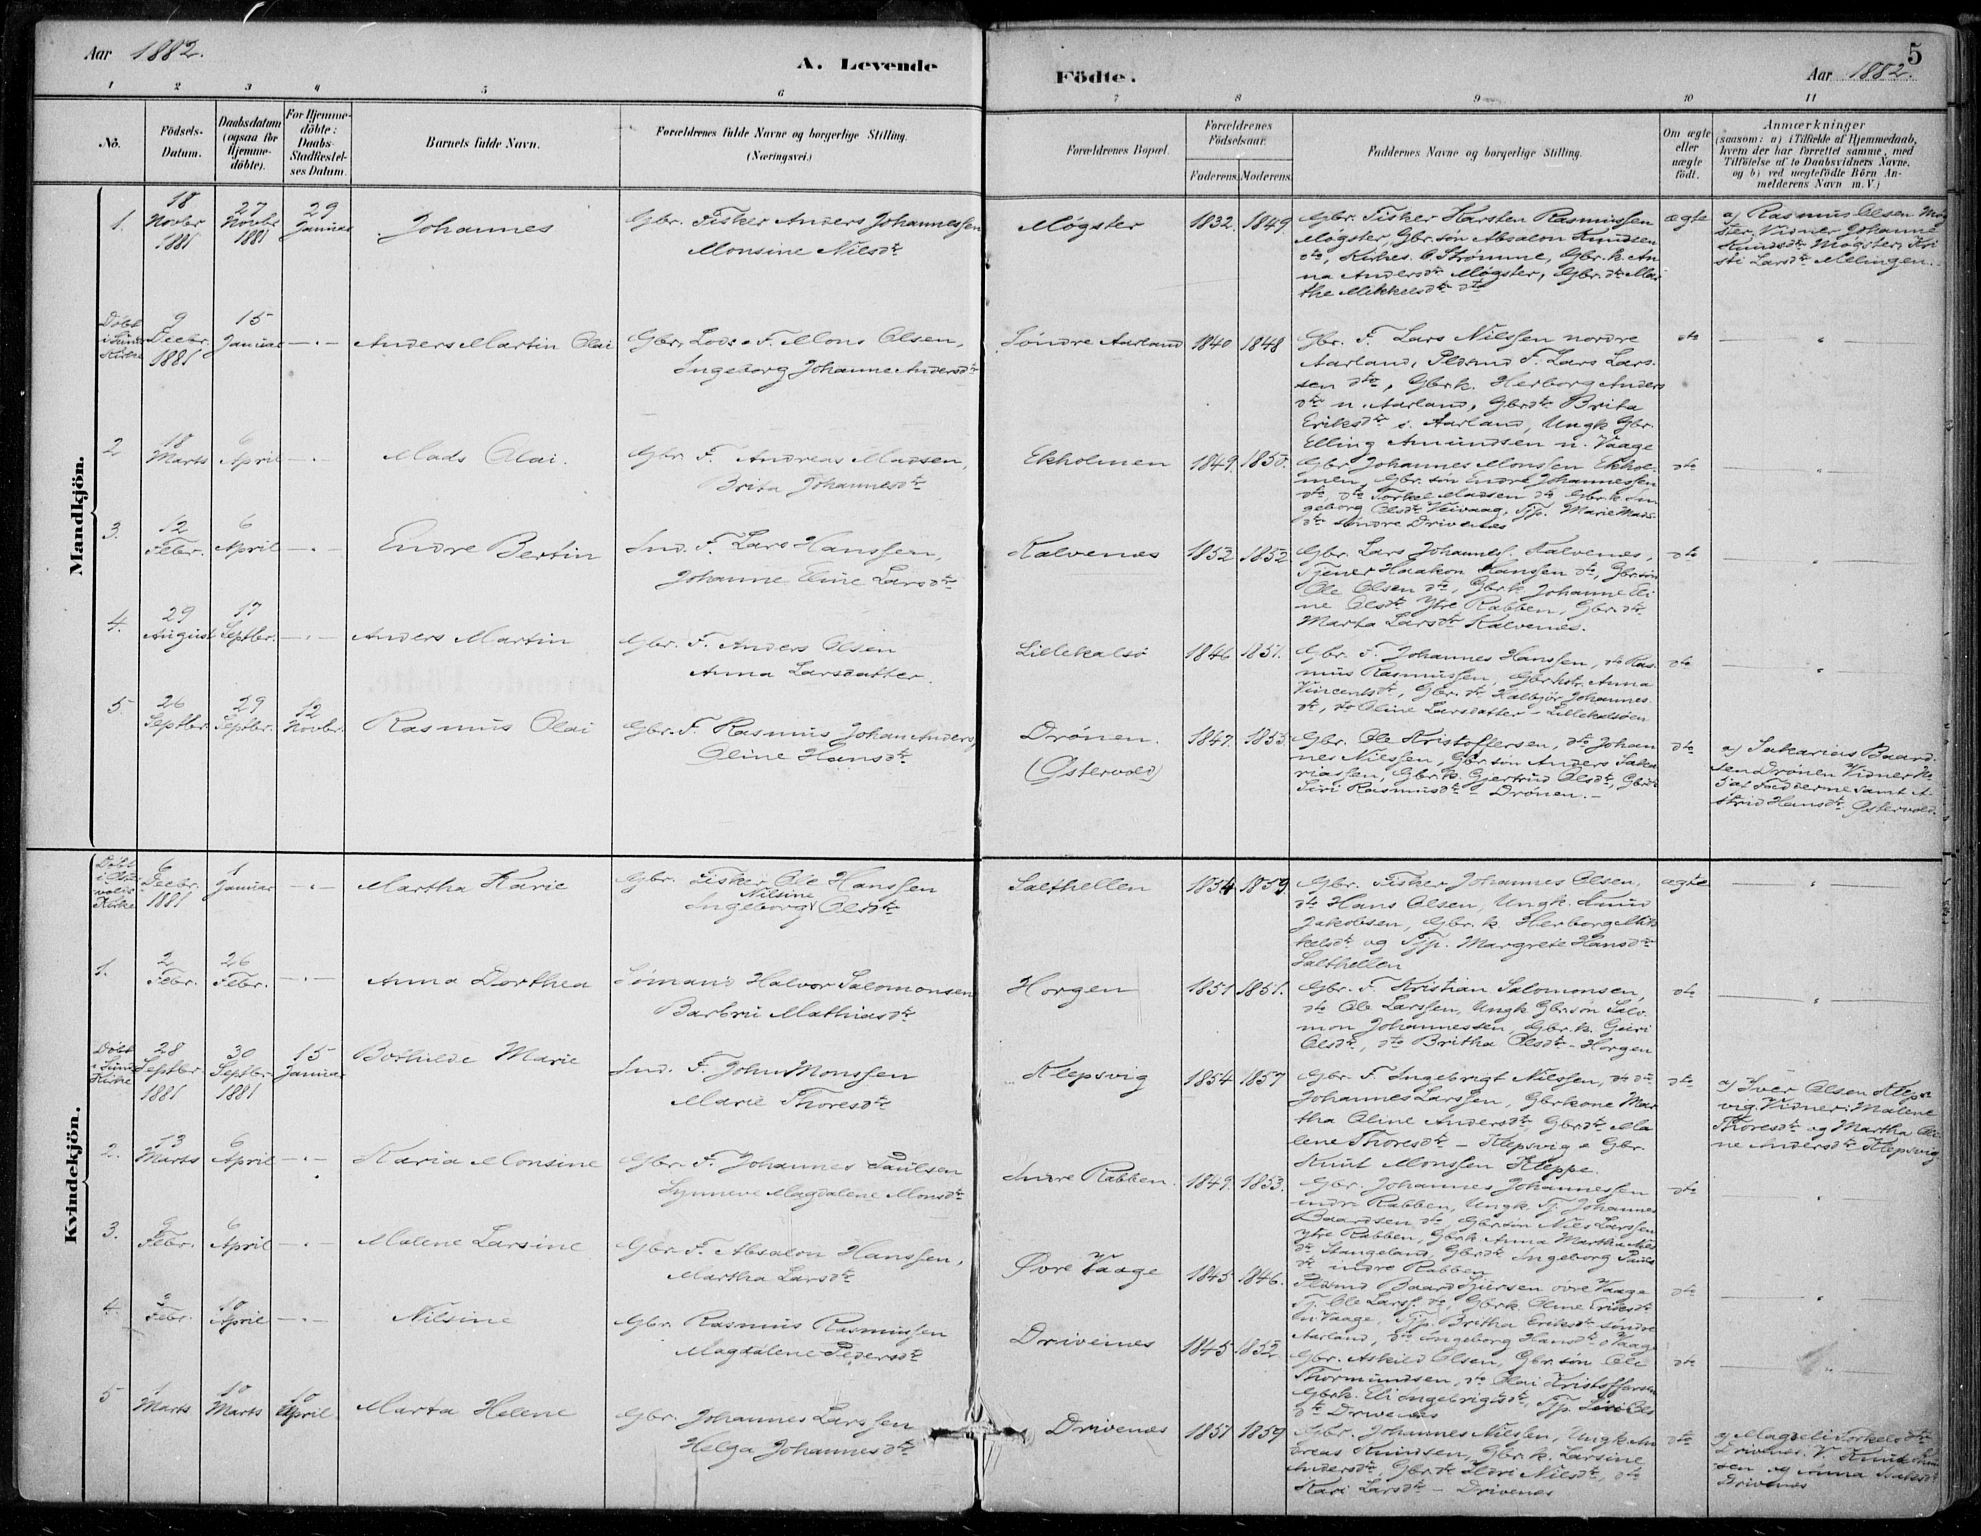 Aar 1882.
A. Levende
Födte.
Aar 1882.
5
1 2 3 4 5 6 7 8 9 10 11
No.
Födsels-
Datum.
Daabsdatum
(ogsaa for
Hjemme-
döbte).
For Hjemme-
döbte:
Daabs-
Stadfæstel-
ses Datum.
Barnets fulde Navn.
Forældrenes fulde Navne og borgerlige Stilling.
(Næringsvei.)
Forældrenes Bopæl.
Forældrenes
Födselsaar.
Faderens. Moderens.
Faddernes Navne og borgerlige Stilling.
Om ægte
eller
uægte
födt.
Anmærkninger
(saasom: a) i Tilfælde af Hjemmedaab,
hvem der har forrettet samme, med
Tilföielse af to Daabsvidners Navne,
og b) ved uægtefödte Börn An-
melderens Navn m. V.)
Mandkjön.
1.
18
Novbr
1881
27
Novbr
1881
29
Januar
Johannes
Gbr. Fisker Anders Johannessen
Monsine Nilsdtr
Møgster
1832. 1849.
Gbr. Fisker Karsten Rasmussen
Møgster, Gbr.søn Absalon Knudsen
dto, Kirkes. O. Strømme, Gbr.k. An-
na Andersdtr Møgster, Gbr.dtr Mar-
the Mikkelsdtr dto
ægte
a) Rasmus Olsen Møg-
ster. Vidner Johanne
Knudsdtr Møgster, Kri-
sti Larsdtr Melingen.
Döbt
i Sund
Kirke
9
Decbr.
1881
15
Januar
Anders Martin Olai
Gbr. Lods o F. Mons Olsen,
Ingeborg Johanne Andersdtr
Søndre Aarland
1840 1848
Gbr. F. Lars Nilssen nordre
Aarland, Pldsmd F. Lars Lars-
sen dto, Gbrk. Herborg Anders
dtr n. Aarland, Gbrdtr Brita
Eriksdtr s. Aarland, Ungk. Gbr.
Elling Amundsen n. Vaage
dto
2
18
Marts
6
April
Mads Olai.
Gbr. F. Andreas Madsen,
Brita Johannesdtr
Ekholmen
1849. 1850.
Gbr. Johannes Monssen Ekhol-
men, Gbr. søn Endre Johannessen
dto, dto Torkel Madsen dto Gbr.k. In-
geborg Olsdtr Veivaag, Tjp. Marie Mads-
dtr søndre Drivenes
dto
3.
12
Febr.
6
April
Endre Bertin
Ind. F. Lars Hanssen,
Johanne Eline Larsdtr
Kalvenes
1852 1852
Gbr. Lars Johannes. Kalvenes,
Tjener Haakon Hanssen dto, Gbr.søn
Ole Olsen dto, Gbrk. Johanne Eli-
ne Olsdtr Ytre Rabben, Gbr.dtr
Marta Larsdtr Kalvenes.
dto
4.
29
August
17
Septbr.
Anders Martin
Gbr. F. Anders Olsen
Anna Larsdatter.
Lillekalsö
1846 1851.
Gbr. F. Johannes Hanssen, dto Ras-
mus Rasmussen, Gbrkstr. Anna
Vincentsdtr, Gbr. dtr Kalbjör Johannes-
dtr, dto Oline Larsdatter - Lillekalsöen
dto
5.
26
Septbr.
29
Septbr.
12
Novbr.
Rasmus Olai
Gbr. F. Rasmus Johan Anders,
Oline Hansdtr
Drönen.
(Østervold)
1847. 1853.
Gbr. Ole Kristoffersen, dto Johan-
nes Nilssen, Gbr.søn Anders Saka-
riassen, Gbr.k. Gjertrud Olsdtr, Gbrdtr
Siri Rasmusdtr - Drönen.-
dto
a) Sakarias Baard-
sen Drönen Vidner No
3 af Fadderne samt A-
strid Hansdtr Østervold.
Kvindekjön.
Döbt
i Öster-
volds
Kirke
6
Decbr.
1881
1
Januar
Martha Karie
Gbr. Fisker Ole Hanssen
Nilsine
Ingeborg Olsdtr
Salthellen
1854 1859.
Gbr. Fisker Johannes Olsen,
dto Hans Olsen, Ungk. Knud
Jakobsen, Gbr.k. Herborg Mik-
kelsdtr og Tjp. Margrete Hansdtr
Salthellen
ægte
1.
2
Febr.
26
Febr.
Anna Dorthea
Sömand Halvor Salomonsen
Barbru Mathiasdtr
Horgen
1851 1851.
Gbr. F. Kristian Salomonsen,
dto Ole Larssen, Ungk. Gbr.søn Salo-
mon Johannessen, Gbr.k. Guri
Olsdtr, dto Britha Olsdtr - Horgen
dto
Döbt
i Sund
Kirke
28
Septbr
1881
30
Septbr
1881
15
Januar
Bothilde Marie
Ind. F. John Monssen
Marie Thoresdtr
Klepsvig
1854 1857
Gbr. F. Ingebrigt Nilssen, dto dto
Johannes Larssen, Gbrkone Mar-
tha Oline Andersdtr, Gbrdtr Ma-
lene Thoresdtr - Klepsvig o Gbr.
Knut Monssen Kleppe.
dto
a) Iver Olsen Kleps-
vig. Vidner: Malene
Thoresdtr og Martha Oli-
ne Andersdtr Klepsvig.
2.
13
Marts
6
April
Karia Monsine
Gbr. F. Johannes Paulsen
Synneve Magdalene Monsdtr
Indre Rabben.
1849. 1853.
Gbr. Johannes Johannessen
indre Rabben, Ungk. Tj. Johannes
Baardsen dto, Gbrsøn Nils Larssen
ytre Rabben, Gbrk. Anna Martha Nils-
dtr Stangeland, Gbrdtr Ingeborg Pauls
dtr indre Rabben
dto
3.
9
Febr.
6
April
Malene Larsine
Gbr. F. Absalon Hanssen,
Martha Larsdtr
Øvre Vaage
1845 1846.
Pldsmd Baard Sjursen övre Vaage
Tj. Ole Larss. dto, Gbrk. Oline Eriksdtr
n Vaage, Tjp. Britha Eriksdtr søndre
Aarland, dto Ingeborg Hansdtr Vaage
dto
4.
3
Febr.
10
April
Nilsine
Gbr. Rasmus Rasmussen
Magdalene Pedersdtr
Drivenes
1845. 1852
Gbr. Askild Olsen, Gbr.søn Ole
Thormundsen, dto Olai Kristoffersen
Gbrk. Eli Ingebrigtsdtr, Tjp. Siri Ols
dtr Drivenes
dto
5
1
Marts
10
Marts
10
April
Marta Helene
Gbr. Johannes Larssen
Helga Johannesdtr
Drivenes
1851 1859
Gbr. Johannes Nilssen, Ungk. An-
dreas Knudsen, Gbr.k. Larsine
Andersdtr, Gbr.dtr Sidri Nilsdtr, dto
Kari Larsdtr - Drivenes
dto
a) Mageli Torkelsdtr
Drivenes. V. Knud
sen og Anna
Drivenes